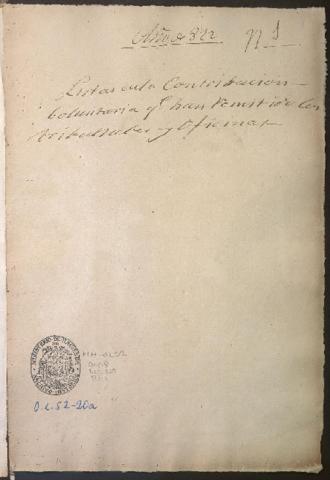 Año de 822 Nº 1
Listas de la Contribucion
boluntaria q.e han remitido los
tribunales y Oficinas
O.L.52-20a